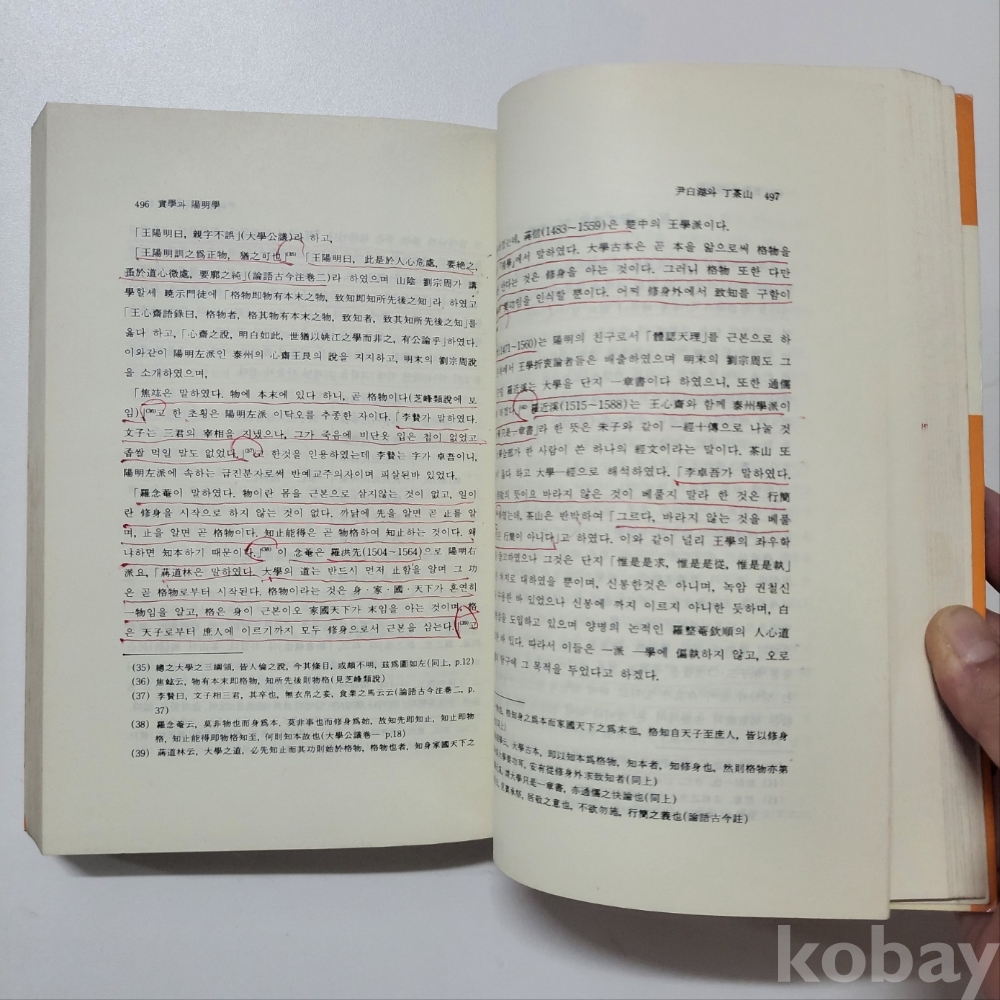 496 實學과 陽明學
「王陽明曰, 親字不誤」(大學公議)라 하고,
「王陽明訓之爲正物, 猶之可也」(35) 「王陽明曰, 此是於人心危處, 要絶之,
蚤於道心微處, 要廓之純」(論語古今注卷二)라 하였으며 山陰 劉宗周가 講
學할세 曉示門徒에 「格物即物有本末之物, 致知即知所先後之知」라 하였고
「王心齋語錄曰, 格物者, 格其物有本末之物, 致知者, 致其知所先後之知」를
옳다 하고, 「心齋之說, 明白如此, 世猶以姚江之學而非之, 有公論乎」하였다.
이와같이 陽明左派인 泰州의 心齋王艮의 說을 지지하고, 明末의 劉宗周說
을 소개하였으며,
「焦竑은 말하였다. 物에 本末에 있다 하니, 곧 格物이다(芝峰類說에 보
임)」(36)고 한 초횡은 陽明左派 이탁오를 추종한 자이다. 「李贄가 말하였다.
文子는 三君의 宰相을 지냈으나, 그가 죽음에 비단옷 입은 첩이 없었고
좁쌀 먹일 말도 없었다.」(37)고 한것을 인용하였는데 李贄는 字가 卓吾이니,
陽明左派에 속하는 급진분자로써 반예교주의자이며 피살된바 있었다.
「羅念菴이 말하였다. 物이란 몸을 근본으로 삼지않는 것이 없고, 일이
란 修身을 시작으로 하지 않는 것이 없다. 까닭에 先을 알면 곧 止를 알
며, 止을 알면 곧 格物이다. 知止能得은 곧 物格하여 知止하는 것이다. 왜
냐하면 知本하기 때문이다.」(38) 이 念菴은 羅洪先(1504~1564)으로 陽明右
派요, 「蔣道林은 말하였다. 大學의 道는 반드시 먼저 止함을 알며 그 功
은 곧 格物로부터 시작된다. 格物이라는 것은 身·家·國·天下가 혼연히
一物임을 알고, 格은 身이 근본이오 家國天下가 末임을 아는 것이며, 格
은 天子로부터 庶人에 이르기까지 모두 修身으로서 근본을 삼는다.」(39)고
(35) 總之大學之三綱領, 皆人倫之說, 今其條目, 或頗不明, 玆爲圖如左(同上, p.12)
(36) 焦竑云, 物有本末即格物, 知所先後則物格(見芝峰類說)
(37) 李贄曰, 文子相三君, 其卒也, 無衣帛之妾, 食粟之馬云云(論語古今注卷二, p.
37)
(38) 羅念菴云, 莫非物也而身爲本, 莫非事也而修身爲始, 故知先即知止, 知止即物
格, 知止能得即物格知至, 何則知本故也(大學公議卷一 p.18)
(39) 蔣道林云, 大學之道, 必先知止而其功則始於格物, 格物也者, 知身家國天下之
尹白湖와 丁茶山 497
는데, 蔣信(1483~1559)은 楚中의 王學派이다.
에서 말하였다. 大學古本은 곧 本을 앎으로써 格物을
안다는 것은 修身을 아는 것이다. 그러니 格物 또한 다만
切功임을 인식할 뿐이다. 어찌 修身外에서 致知를 구함이
1471~1560)는 陽明의 친구로서 「體認天理」를 근본으로 하
에서 王學折衷論者들은 배출하였으며 明末의 劉宗周도 그
羅近溪는 大學을 단지 一章書이다 하였으니, 또한 通儒
하겠다.」 羅近溪(1515~1588)는 王心齋와 함께 泰州學派이
只是一章書」라 한 뜻은 朱子와 같이 一經十傳으로 나눌 것
全部가 한 사람이 쓴 하나의 經文이라는 말이다. 茶山 또
옳다 하고 大學一經으로 해석하였다. 「李卓吾가 말하였다.
의 뜻이요 바라지 않은 것이 베풀지 말라 한 것은 行簡
는데, 茶山은 반박하여 「그르다, 바라지 않는 것을 베풀
은 行簡이 아니다」고 하였다. 이와 같이 널리 王學의 좌우학
참고하였으나 그것은 단지 「惟是是求, 惟是是從, 惟是是執」
대하였을 뿐이며, 신봉한것은 아니며, 녹암 권철신
한 바 있었으나 신봉에 까지 이르지 아니한 듯하며, 白
을 도입하고 있으며 양명의 논적인 羅整菴欽順의 人心道
바 있다. 따라서 이들은 一派 一學에 偏執하지 않고, 오로
탐구에 그 목적을 두었다고 하겠다.
也, 格知身之爲本而家國天下之爲末也, 格知自天子至庶人, 皆以修身
云, 大學古本, 即以知本爲格物, 知本者, 知修身也, 然則格物亦第
切功耳, 安有從修身外求致知者(同上)
謂大學只是一章書, 亦通儒之快論也(同上)
居敬之意也, 不欲勿施, 行簡之義也(論語古今註)
kobay